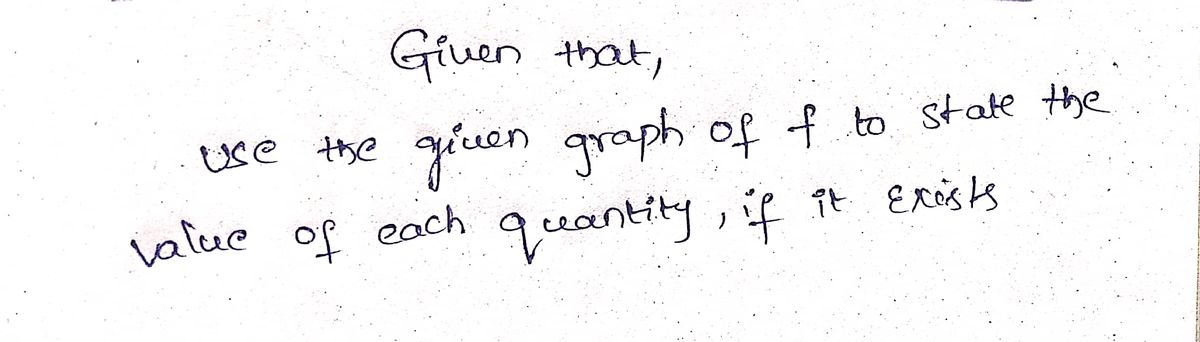 Given that,
use the given graph of f to state the
value of each quantity, if it exists